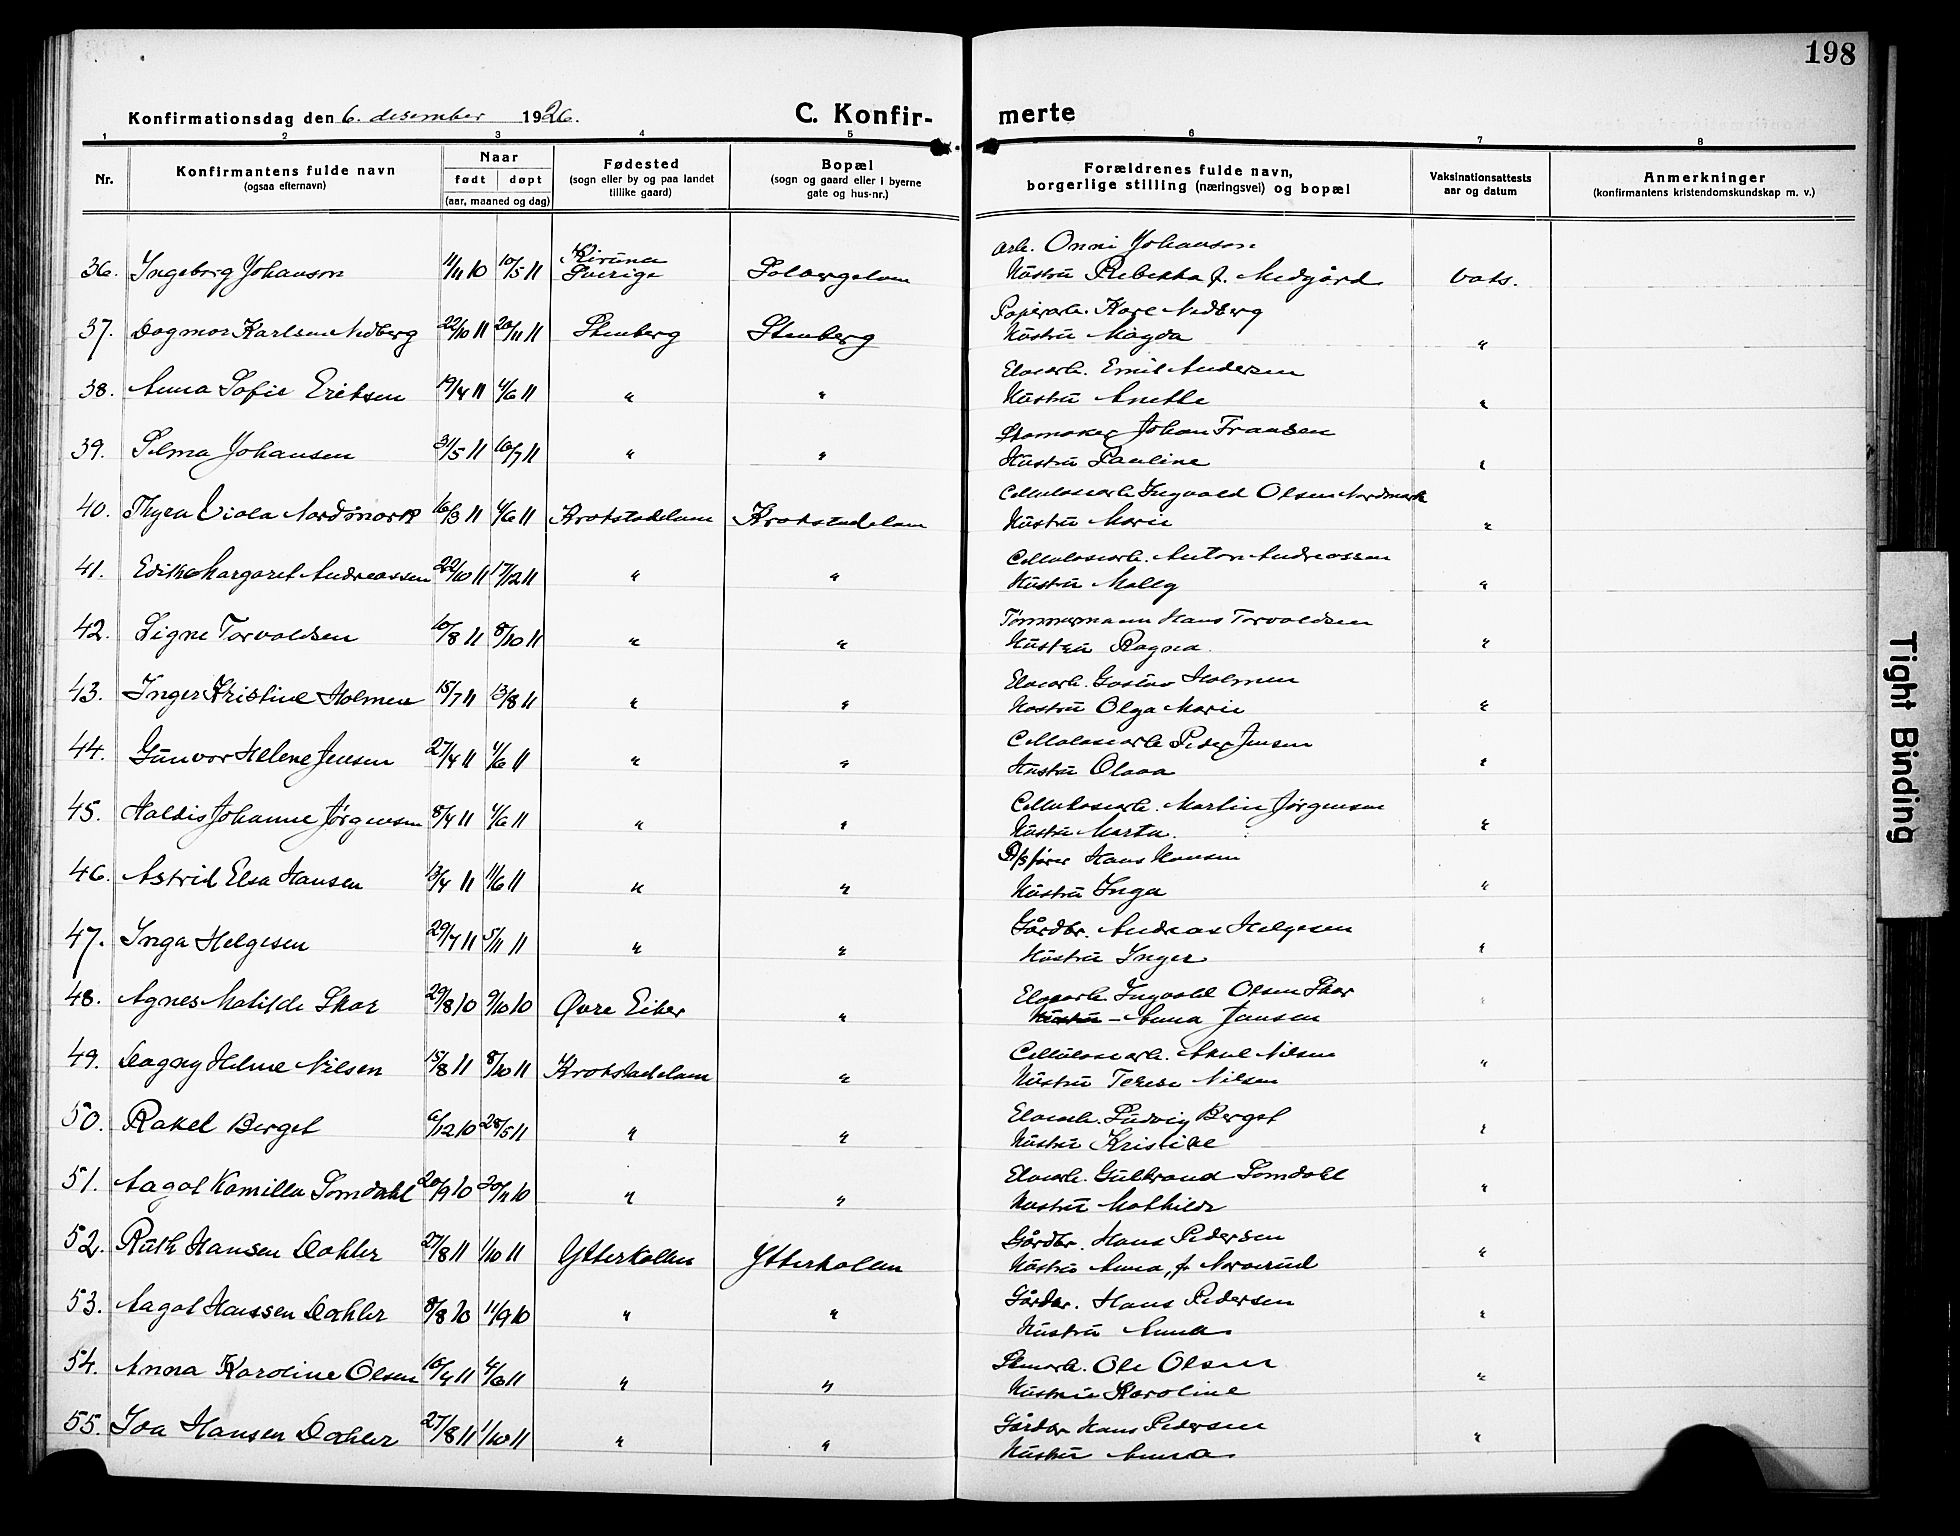 198
Konfirmationsdag den 6. desember 1926.
C. Konfir-
merte
1 2 3 4 5 6 7 8
Nr.
Konfirmantens fulde navn
(ogsaa efternavn)
Naar
født døpt
(aar, maaned og dag)
Fødested
(sogn eller by og paa landet
tillike gaard)
Bopæl
(sogn og gaard eller i byerne
gate og hus-nr.)
Forældrenes fulde navn,
borgerlige stilling (næringsvei) og bopæl
Vaksinationsattests
aar og datum
Anmerkninger
(konfirmantens kristendomskundskap m. v.)
Kiruna arb. Onni Johanson
36. Ingeborg Johanson 11/11 10 10/5 11 Sverige Solbergelven Hustru Rebekka f. Medgård vaks.
Papirarb. Kare Nedberg
37. Dagmar Karlsen Nedberg 22/10 11 26/11 11 Stenberg Stenberg Hustru Magda "
Elvearb. Emil Andersen
38. Anna Sofie Eriksen 19/4 11 4/6 11 " " Hustru Anette "
Skomaker Johan Fransen
39. Selma Johansen 31/5 11 16/7 11 " " Hustru Pauline "
Cellulosearb. Ingvald Olsen Nordmark
40. Thyra Viola Nordmark 16/3 11 4/6 11 Krokstadelven Krokstadelven Hustru Marie "
Cellulosearb. Anton Andreassen
41. Edith Margaret Andreassen 22/10 11 17/12 11 " " Hustru Molly "
Tømmermann Hans Torvaldsen
42. Signe Torvaldsen 10/8 11 8/10 11 " " Hustru Ragna "
Elvearb. Gustav Holmen
43. Inger Kristine Holmen 15/7 11 13/8 11 " " Hustru Olga Marie "
Cellulosearb Peder Jensen
44. Gunvor Helene Jensen 27/4 11 4/6 11 " " Hustru Olava "
Cellulosearb. Martin Jørgensen
45. Haldis Johanne Jørgensen 8/4 11 4/6 11 " " Hustru Marta. "
fører Hans Hansen
46. Astrid Elsa Hansen 13/4 11 11/6 11 " " Hustru Inga "
Gårdbr. Andreas Helgesen
47. Inga Helgesen 29/7 11 5/11 11 " " Hustru Inger "
Elvearb. Ingvald Olsen Skar
48. Agnes Matilde Skar 29/8 10 9/10 10 Øvre Eiker " Hustru - Anna Jansen "
Cellulosearb. Aksel Nilsen
49. Dagny Helene Nilsen 15/8 11 8/10 11 Krokstadelven " Hustru Terese Nilsen "
Elvearb. Ludvig Berget
50. Rakel Berget 6/12 10 28/5 11 " " Hustru Kristine "
Elvearb. Gulbrand Somdahl
51. Aagot Kamilla Somdahl 20/9 10 20/11 10 " " Hustru Mathilde "
Gårdbr. Hans Pedersen
52. Ruth Hansen Dahler 27/8 11 1/10 11 Ytterkollen Ytterkollen Hustru Anna, f. Narverud "
Gårdbr. Hans Pedersen
53. Aagot Hanssen Dahler 8/8 10 11/9 10 " " Hustru Anna "
Ole Olsen
54. Anna Karoline Olsen 10/4 11 4/6 11 " " Hustru Karoline "
Gårdbr Hans Pedersen
55. Ida Hansen Dahler 27/8 11 1/10 11 " " Hustru Anna "
Tight Binding